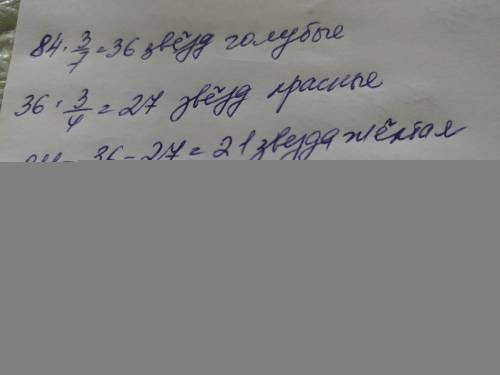 84 · 3/7 = 36 звёзд голубые
36 · 3/4 = 27 звёзд красные
84 - 36 - 27 = 21 звезда жёлтая